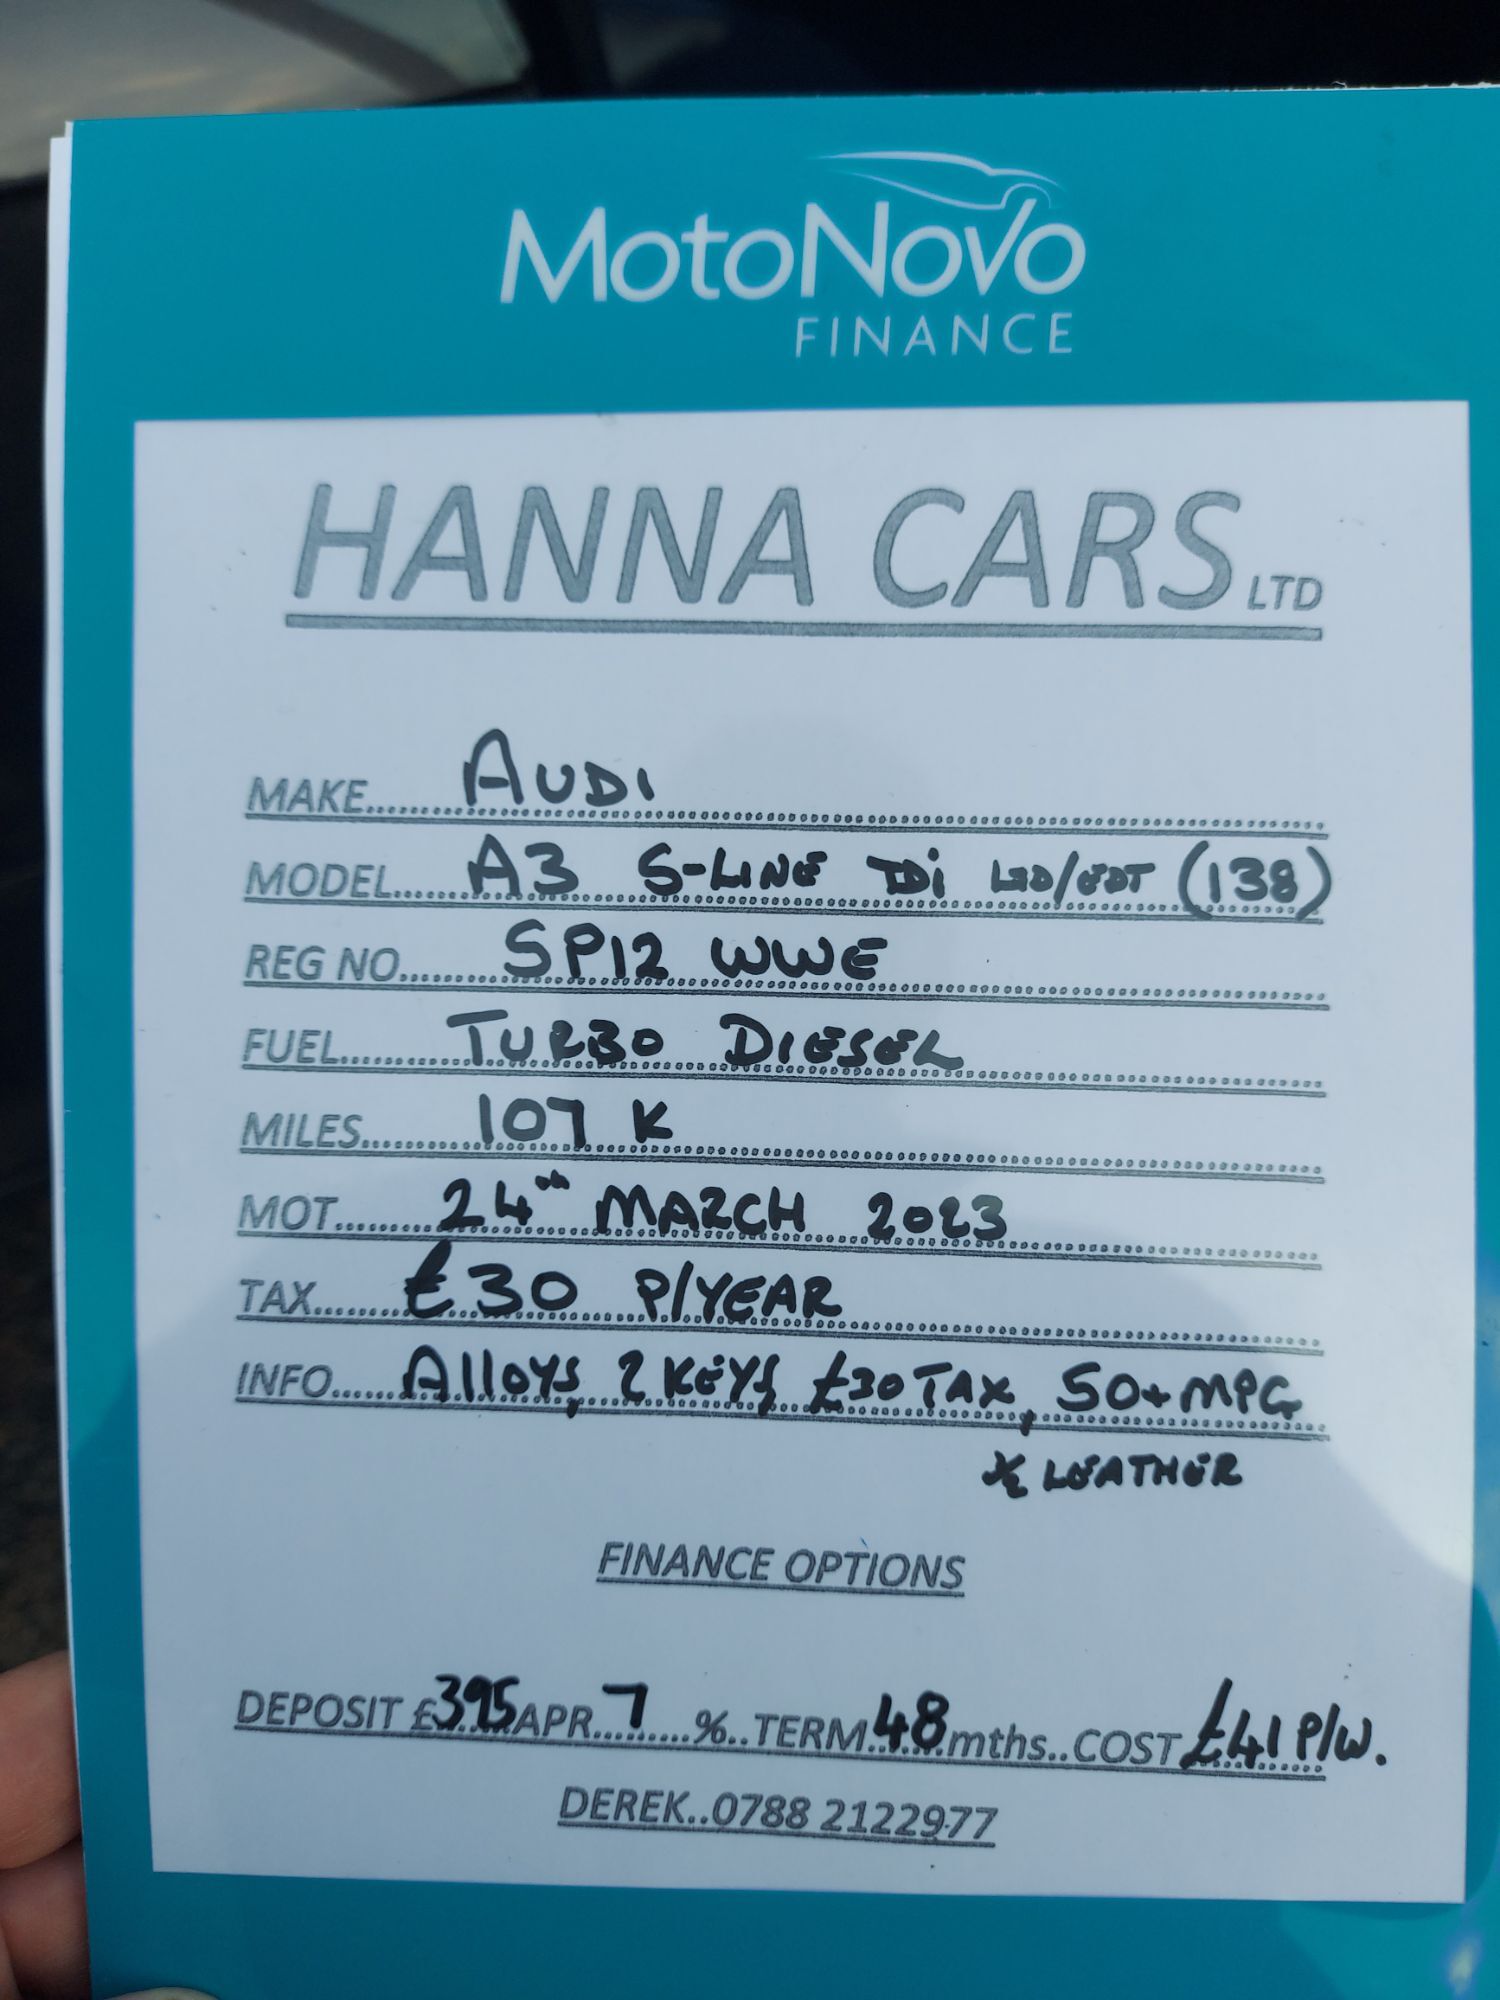 MotoNovo
FINANCE
HANNA CARS LTD
MAKE....... AUDI
MODEL...... A3 S-LINE TDi LTD/EDT (138)
REG NO...... SP12 WWE
FUEL....... TURBO DIESEL
MILES....... 107 K
MOT....... 24th MARCH 2023
TAX....... £30 P/YEAR
INFO....... Alloys, 2 KEYS £30 TAX, 50+ MPG
½ LEATHER
FINANCE OPTIONS
DEPOSIT £395 APR..7...%..TERM 48 mths..COST £41 P/W.
DEREK..0788 2122977